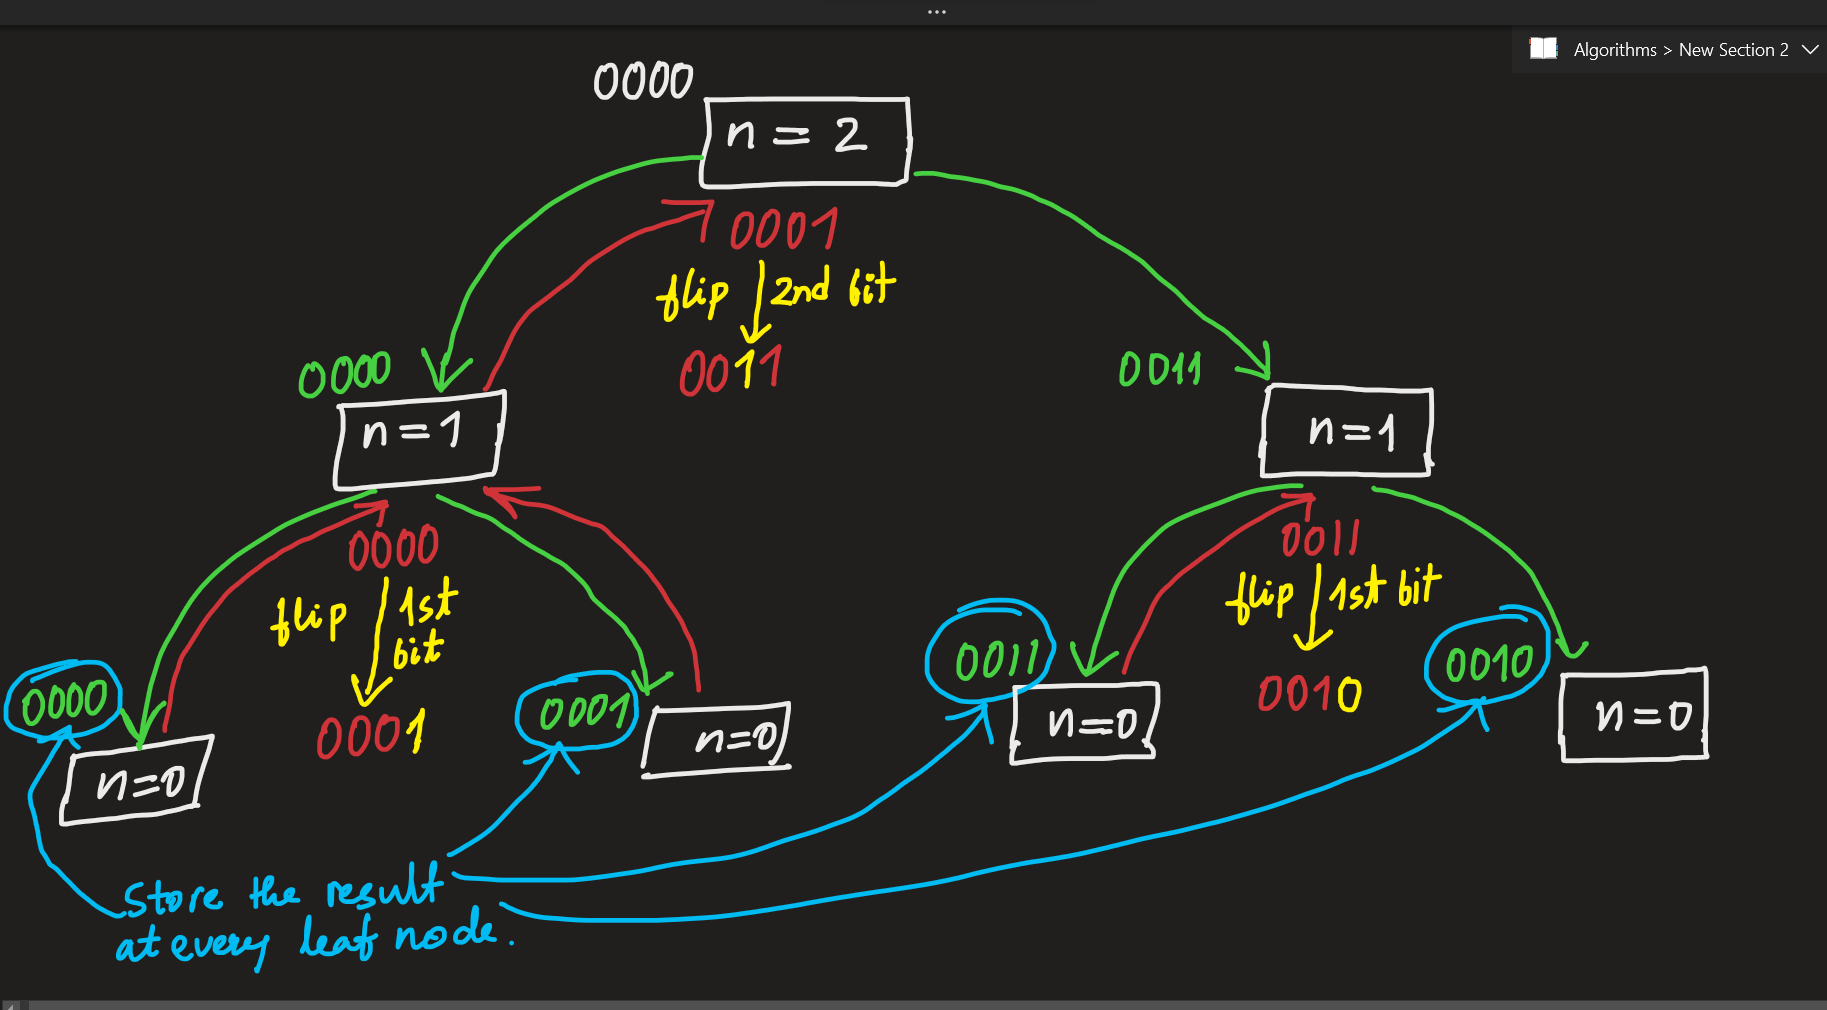 ...
Algorithms > New Section 2
0000
n = 2
0001
flip 2nd bit
0011
0000
n=1
0011
n=1
0000
flip 1st
bit
0001
0011
flip 1st bit
0010
0000
n=0
0001
n=0
0011
n=0
0010
n=0
Store the result
at every leaf node.